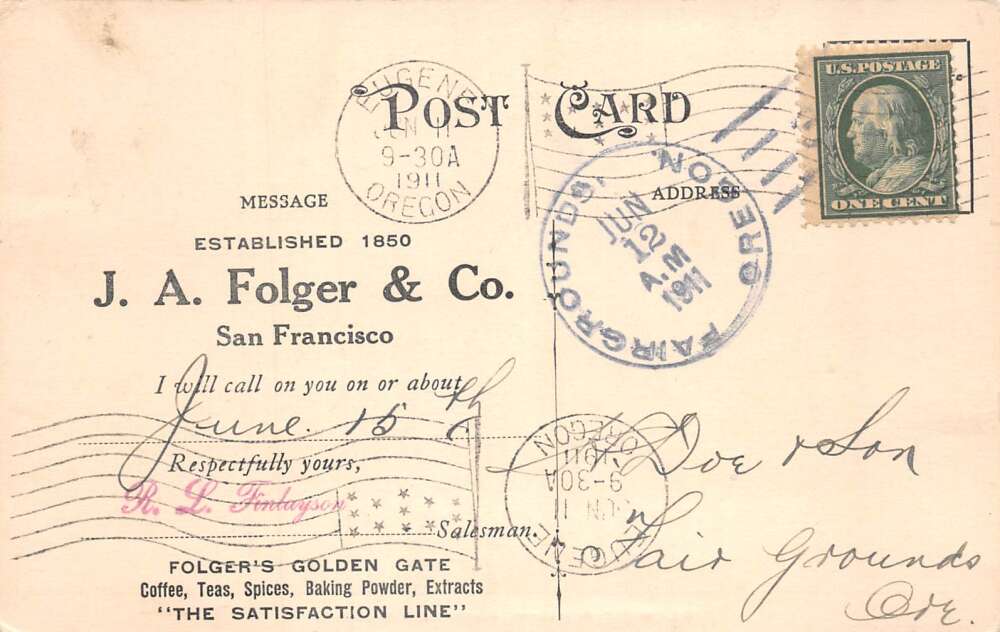 POST CARD
U.S. POSTAGE
ONE CENT
EUGENE
JUN 11
9-30A
1911
OREGON
FAIRGROUNDS, OREGON.
JUN
12
A.M
1911
MESSAGE
ADDRESS
ESTABLISHED 1850
J. A. Folger & Co.
San Francisco
I will call on you on or about
June 15th
Respectfully yours,
R. L. Finlayson
Salesman.
FOLGER'S GOLDEN GATE
Coffee, Teas, Spices, Baking Powder, Extracts
"THE SATISFACTION LINE"
EUGENE
JUN 11
9-30A
1911
OREGON
Doe & Son
Fair Grounds
Ore.